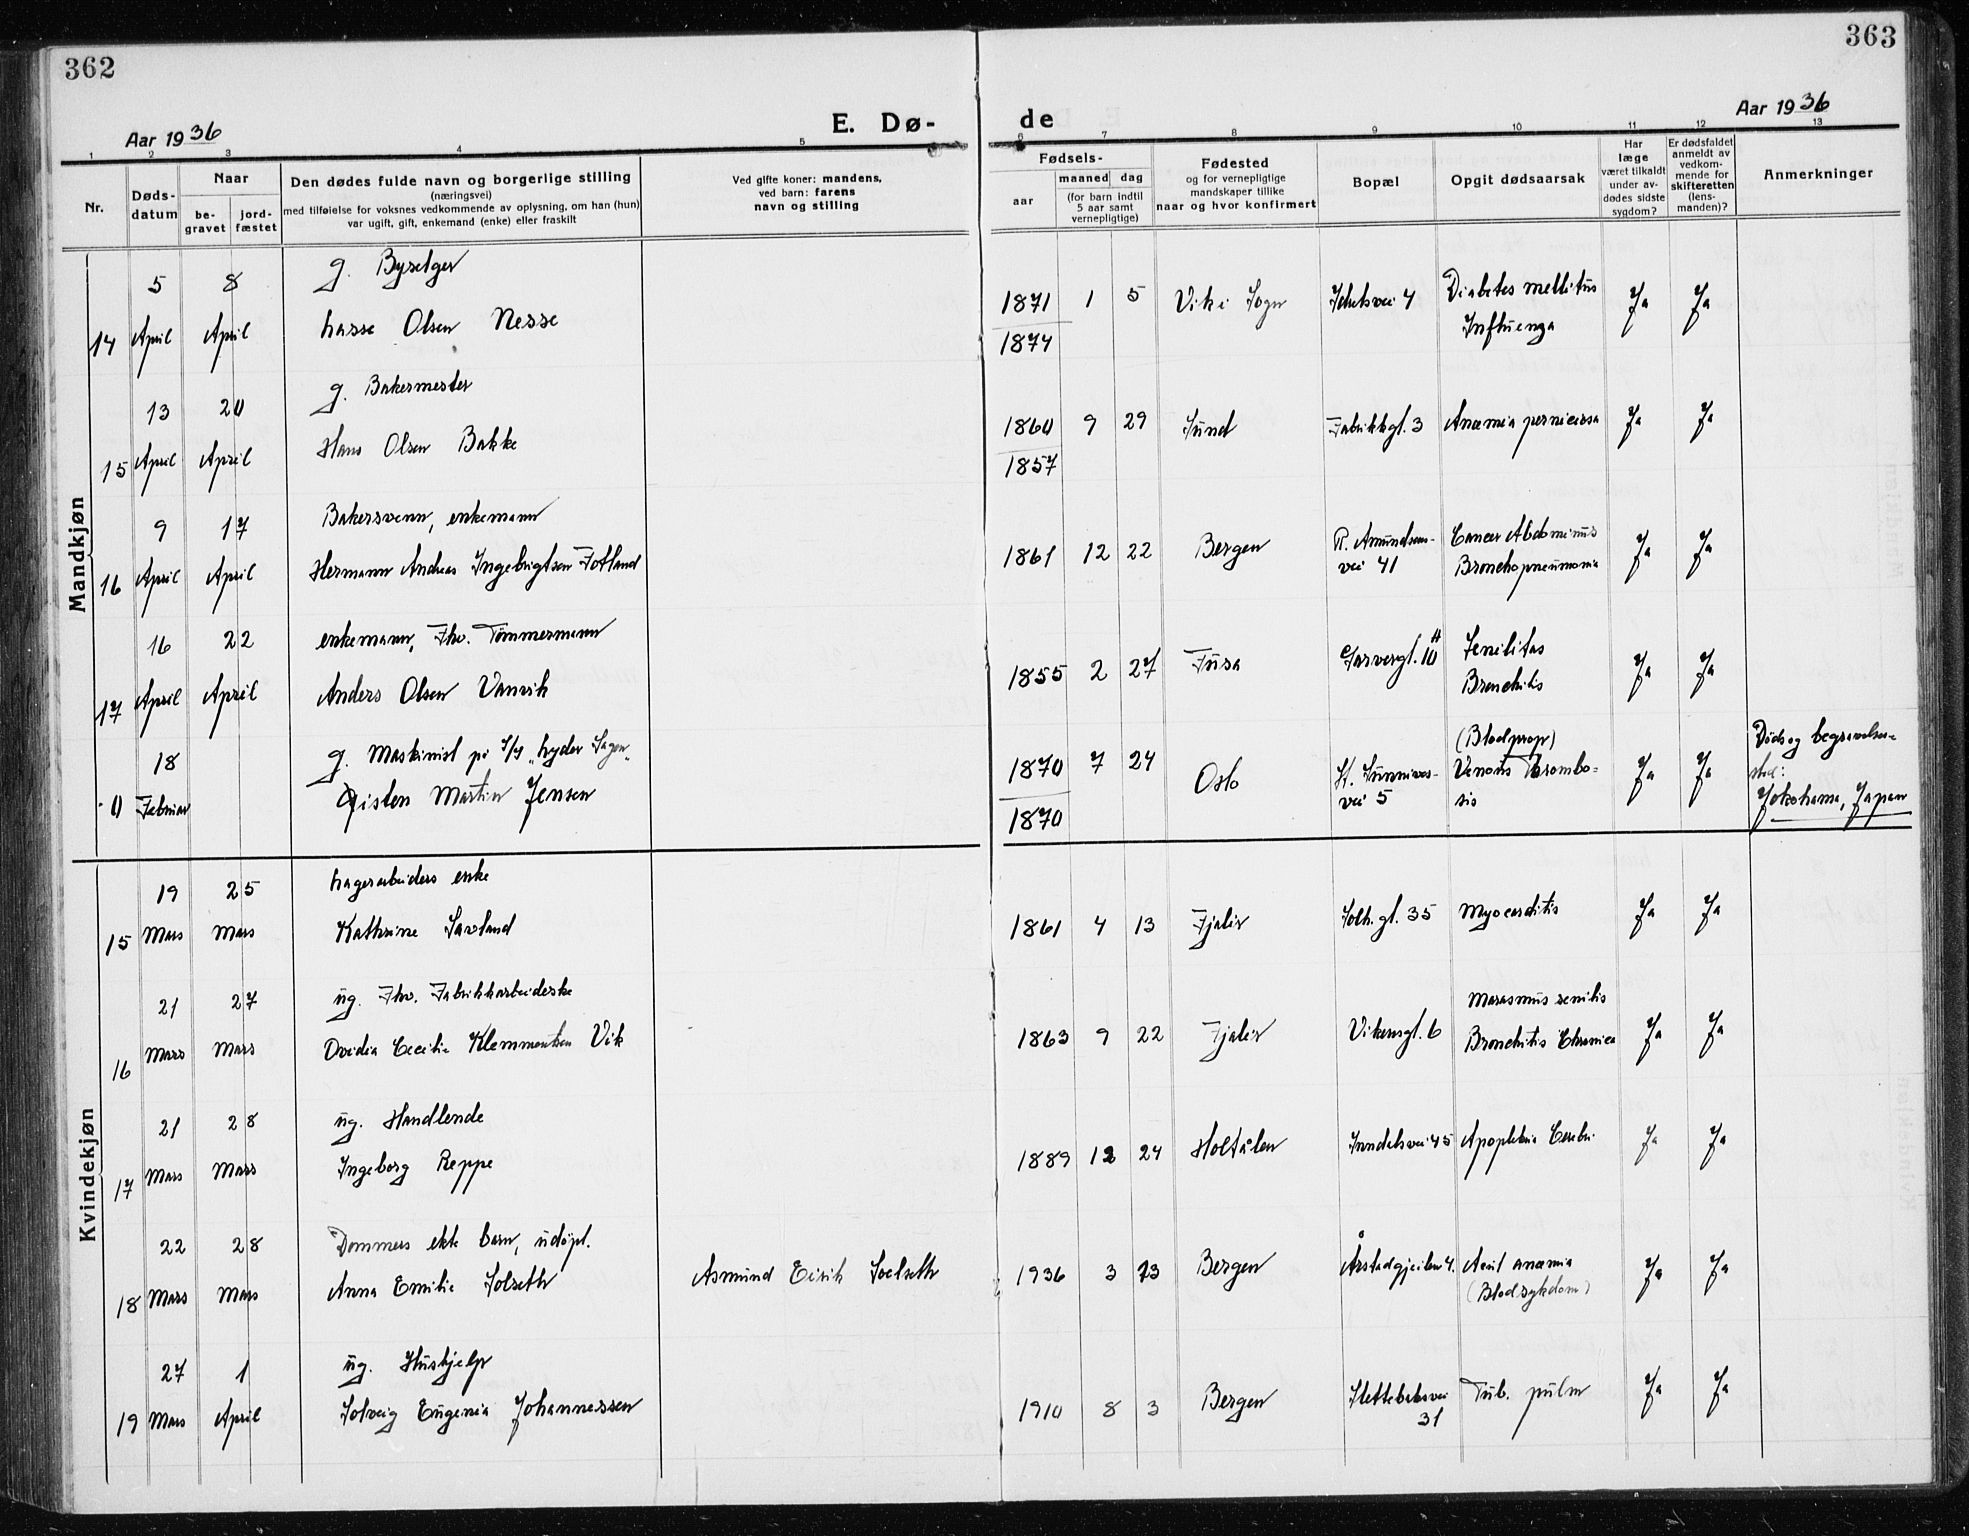 362
363
Aar 1936
E. Dø-
de
Aar 1936
1 2 3 4 5 6 7 8 9 10 11 12 13
Nr.
Døds-
datum
Naar
be-
gravet
jord-
fæstet
Den dødes fulde navn og borgerlige stilling
(næringsvei)
med tilføielse for voksnes vedkommende av oplysning, om han (hun)
var ugift, gift, enkemand (enke) eller fraskilt
Ved gifte koner: mandens,
ved barn: farens
navn og stilling
Fødsels-
aar
maaned dag
(for barn indtil
5 aar samt
vernepligtige)
Fødested
og for vernepligtige
mandskaper tillike
naar og hvor konfirmert
Bopæl
Opgit dødsaarsak
Har
læge
været tilkaldt
under av-
dødes sidste
sygdom?
Er dødsfaldet
anmeldt av
vedkom-
mende for
skifteretten
(lens-
manden)?
Anmerkninger
Mandkjøn
5 8 g. Byselger
14 April April Lasse Olsen Nesse
1871 1 5 Vik i Sogn Diabetes mellitus Ja Ja
1874 Influenza
13 20 g. Bakermester
15 April April Hans Olsen Bakke
1860 9 29 Sund Fabrikkgt. 3 Anæmia perniciosa Ja Ja
1857
9 17 Bakersvenn, enkemann
16 April April Hermann Andreas Ingebrigtsen Fotland
1861 12 22 Bergen R. Amundsens-
vei 41
Cancer Abdominus
Bronchopneumonia
Ja Ja
16 22 enkemann, Fhv. Tømmermann
17 April April Anders Olsen Vannik
1855 2 27 Fusa Garvergt. 10 A Senilitas
Bronchitis
Ja Ja
18 g. Maskinist på S/S "Lyder Sagen"
0 Februar Kristen Martin Jensen
1870 7 24 Oslo St. Sunnivas-
vei 5
(Blodprop)
Venous Thrombo-
sis
Ja Ja
1870
Døds og begravelses-
sted:
Yokohama, Japan
Kvindekjøn
19 25 Lagerarbeiders enke
15 Mars Mars Kathrine Savland
1861 4 13 Fjaler Solh. gt. 35 Myocarditis Ja Ja
21 27 ug. Fhv. Fabrikkarbeiderske
16 Mars Mars Ovidia Cecilie Klemmentsen Vik
1863 9 22 Fjaler Vikensgt. 6 Marasmus senilis
Bronchitis Chronica
Ja Ja
21 28 ug. Handlende
17 Mars Mars Ingeborg Reppe
1889 12 24 Holtålen Inndalsvei 45 Apoplexia Cerebri Ja Ja
22 28 Dommers ekte barn, udøpt.
18 Mars Mars Anna Emilie Solseth
Asmund Eirik Soelseth
1936 3 13 Bergen Årstadgjeilen 4. Acut anæmia
(Blodsykdom)
Ja Ja
27 1 ug. Hushjelp
19 Mars April Solveig Eugenia Johannessen
1910 8 3 Bergen Slettebakksvei
31
Tub. pulm Ja Ja